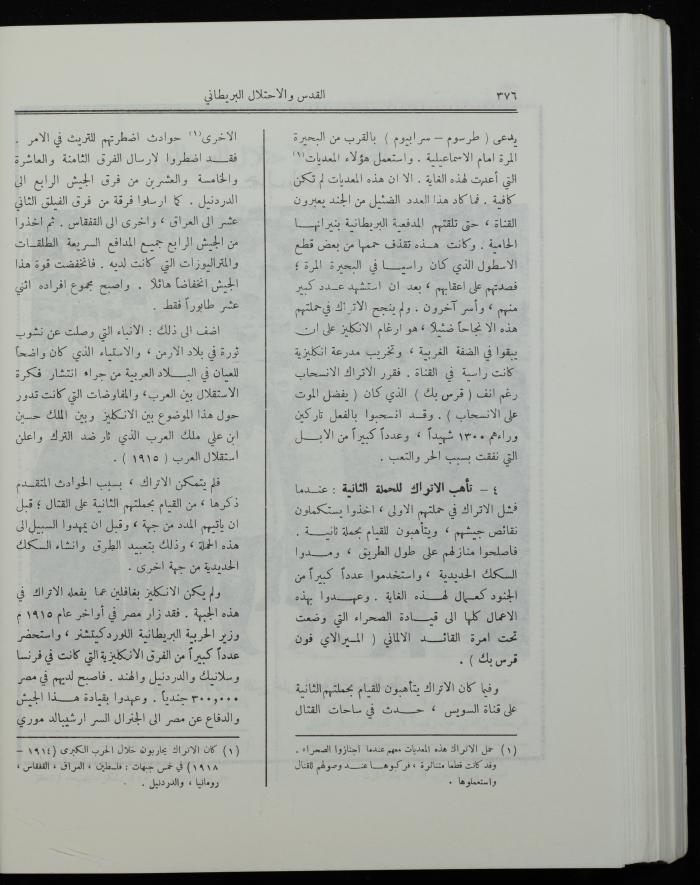 ٣٧٦
القدس والاحتلال البريطاني
يدعى ( طرسوم – سرابيوم ) بالقرب من البحيرة
المرة امام الاسماعيلية . واستعمل هؤلاء المعديات(١)
التي أعدت لهذه الغاية . الا ان هذه المعديات لم تكن
كافية . فما كاد هذا العدد الضئيل من الجند يعبرون
القناة ، حتى تلقتهم المدفعية البريطانية بنيرانها
الحامية . وكانت هذه تقذف حممها من بعض قطع
الاسطول الذي كان راسياً في البحيرة المرة ؛
فصدتهم على اعقابهم ، بعد ان استشهد عدد كبير
منهم ، وأسر آخرون . ولم ينجح الاتراك في حملتهم
هذه الا نجاحاً ضئيلاً ، هو ارغام الانكليز على ان
يبقوا في الضفة الغربية ، وتخريب مدرعة انكليزية
كانت راسية في القناة . فقرر الاتراك الانسحاب
رغم انف ( قرس بك ) الذي كان ( يفضل الموت
على الانسحاب ) . وقد انسحبوا بالفعل تاركين
وراءهم ١٣٠٠ شهيداً ، وعدداً كبيراً من الابل
التي نفقت بسبب الحر والتعب .
٤ – تأهب الاتراك للحملة الثانية : عندما
فشل الاتراك في حملتهم الاولى ، اخذوا يستكملون
نقائص جيشهم ، ويتأهبون للقيام بحملة ثانية .
فاصلحوا منازلهم على طول الطريق ، ومدوا
السكك الحديدية ، واستخدموا عدداً كبيراً من
الجنود كعمال لهذه الغاية . وعهدوا بهذه
الاعمال كلها الى قيادة الصحراء التي وضعت
تحت امرة القائد الالماني ( الميرالاي فون
قرس بك ) .
وفيما كان الاتراك يتأهبون للقيام بحملتهم الثانية
على قناة السويس ، حدث في ساحات القتال
(١) حمل الاتراك هذه المعديات معهم عندما اجتازوا الصحراء .
وقد كانت قطعا متناثرة ، فركبوها عند وصولهم للقنال
واستعملوها .
الاخرى(١) حوادث اضطرتهم للتريث في الامر .
فقد اضطروا لارسال الفرق الثامنة والعاشرة
والخامسة والعشرين من فرق الجيش الرابع الى
الدردنيل . كما ارسلوا فرقة من فرق الفيلق الثاني
عشر الى العراق ، واخرى الى القفقاس . ثم اخذوا
من الجيش الرابع جميع المدافع السريعة الطلقات
والمتراليوزات التي كانت لديه . فانخفضت قوة هذا
الجيش انخفاضاً هائلاً . واصبح مجموع افراده اثني
عشر طابوراً فقط .
اضف الى ذلك : الانباء التي وصلت عن نشوب
ثورة في بلاد الارمن ، والاستياء الذي كان واضحاً
للعيان في البلاد العربية من جراء انتشار فكرة
الاستقلال بين العرب، والمفاوضات التي كانت تدور
حول هذا الموضوع بين الانكليز وبين الملك حسين
ابن علي ملك العرب الذي ثار ضد الترك واعلن
استقلال العرب ( ١٩١٥ ) .
فلم يتمكن الاتراك ، بسبب الحوادث المتقدم
ذكرها ، من القيام بحملتهم الثانية على القتال ؛ قبل
ان ياتيهم المدد من جهة ، وقبل ان يمهدوا السبيل الى
هذه الحملة ، وذلك بتعبيد الطرق وانشاء السكك
الحديدية من جهة اخرى .
ولم يكن الانكليز بغافلين عما يفعله الاتراك في
هذه الجبهة . فقد زار مصر في أواخر عام ١٩١٥ م
وزير الحربية البريطانية اللورد كيتشنر ، واستحضر
عدداً كبيراً من الفرق الانكليزية التي كانت في فرنسا
وسلانيك والدردنيل والهند . فاصبح لديهم في مصر
٣٠٠,٠٠٠ جندياً . وعهدوا بقيادة هذا الجيش
والدفاع عن مصر الى الجنرال السر ارشيبالد موري
(١) كان الاتراك يحاربون خلال الحرب الكبرى (١٩١٤ –
١٩١٨) في خمس جبهات : فلسطين ، العراق ، القفقاس ،
رومانيا ، والدردنيل .